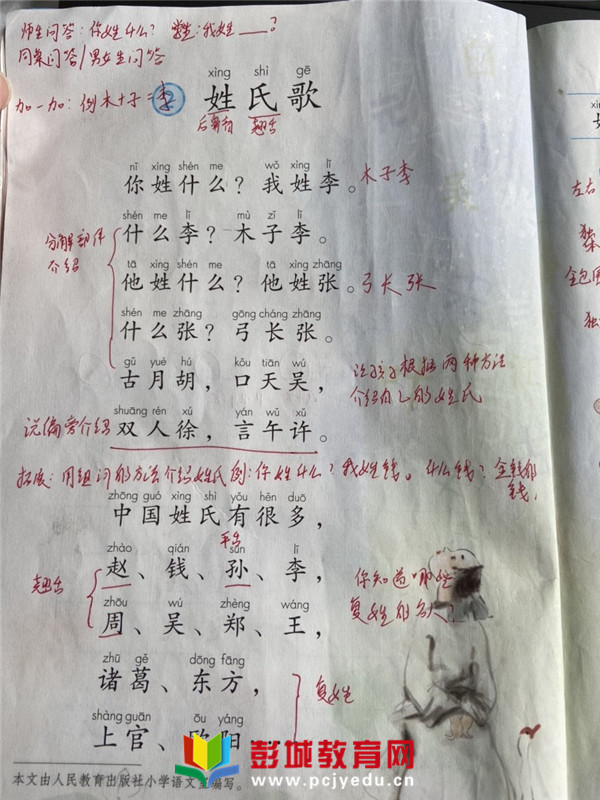 师生问答：你姓什么？ 学生：我姓＿＿？
同桌问答/男女生问答
加一加：例木+子=李
xìng shì gē
姓氏歌
后鼻音 翘舌
nǐ xìng shén me wǒ xìng lǐ
你姓什么？我姓李。木子李
shén me lǐ mù zǐ lǐ
什么李？木子李。
分解部件
介绍
tā xìng shén me tā xìng zhāng
他姓什么？他姓张。弓长张
shén me zhāng gōng cháng zhāng
什么张？弓长张。
gǔ yuè hú kǒu tiān wú
古月胡，口天吴，
让孩子根据两种方法
介绍自己的姓氏
shuāng rén xú yán wǔ xǔ
说偏旁介绍 双人徐，言午许。
拓展：用组词的方法介绍姓氏 例：你姓什么？我姓钱。什么钱？金钱的
钱，
zhōng guó xìng shì yǒu hěn duō
中国姓氏有很多，
平舌
zhào qián sūn lǐ
赵、钱、孙、李，
翘舌
zhōu wú zhèng wáng
周、吴、郑、王，
你知道哪些
复姓的名人？
zhū gě dōng fāng
诸葛、东方，
复姓
shàng guān ōu yáng
上官、欧阳……
本文由人民教育出版社小学语文室编写。
彭城教育网
www.pcjyedu.cn
左右
独
全包围
独